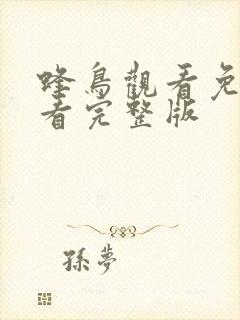 蜂鳥觀看免
看完整版
孫夢